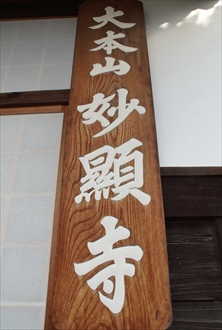 大本山妙顯寺